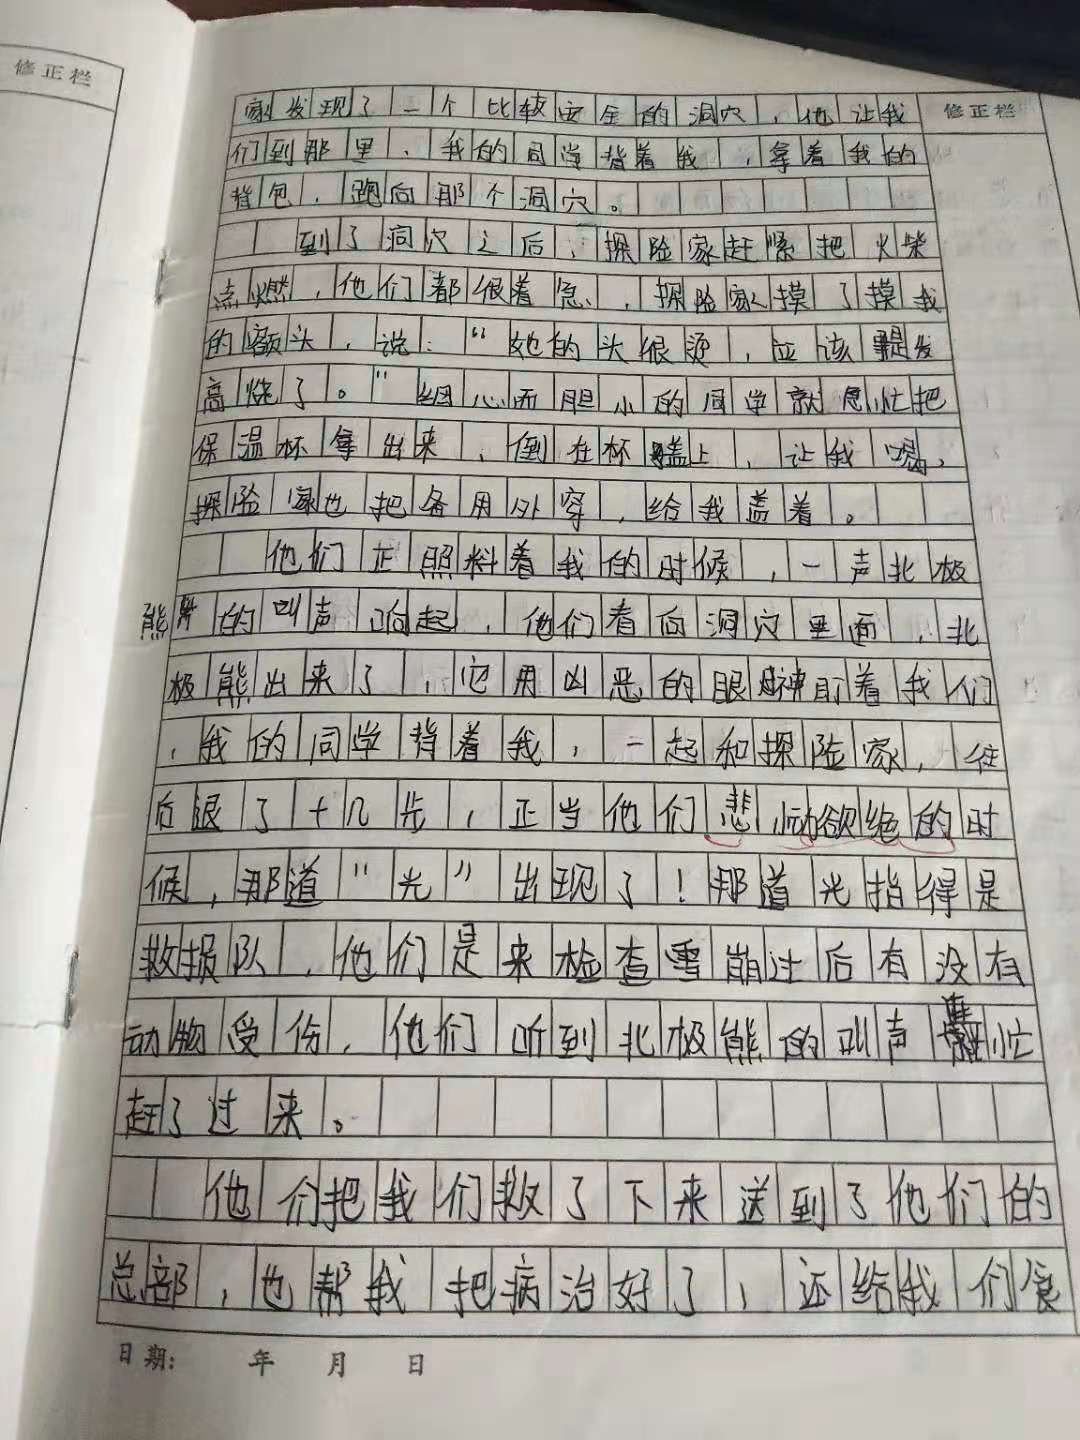 修正栏
修正栏
家发现了一个比较安全的洞穴，他让我
们到那里，我的同学背着我，拿着我的
背包，跑向那个洞穴。
到了洞穴之后，探险家赶紧把火柴
点燃，他们都很着急，探险家摸了摸我
的额头，说：“她的头很烫，应该是发
高烧了。”细心而胆小的同学就急忙把
保温杯拿出来，倒在杯盖上，让我喝，
探险家也把备用外穿，给我盖着。
他们正照料着我的时候，一声北极
熊的叫声响起，他们看向洞穴里面，北
极熊出来了，它用凶恶的眼神盯着我们
，我的同学背着我，一起和探险家，往
后退了十几步，正当他们悲恸欲绝的时
候，那道“光”出现了！那道光指得是
救援队，他们是来检查雪崩过后有没有
动物受伤，他们听到北极熊的叫声连忙
赶了过来。
他们把我们救了下来送到了他们的
总部，也帮我把病治好了，还给我们食
日期： 年 月 日